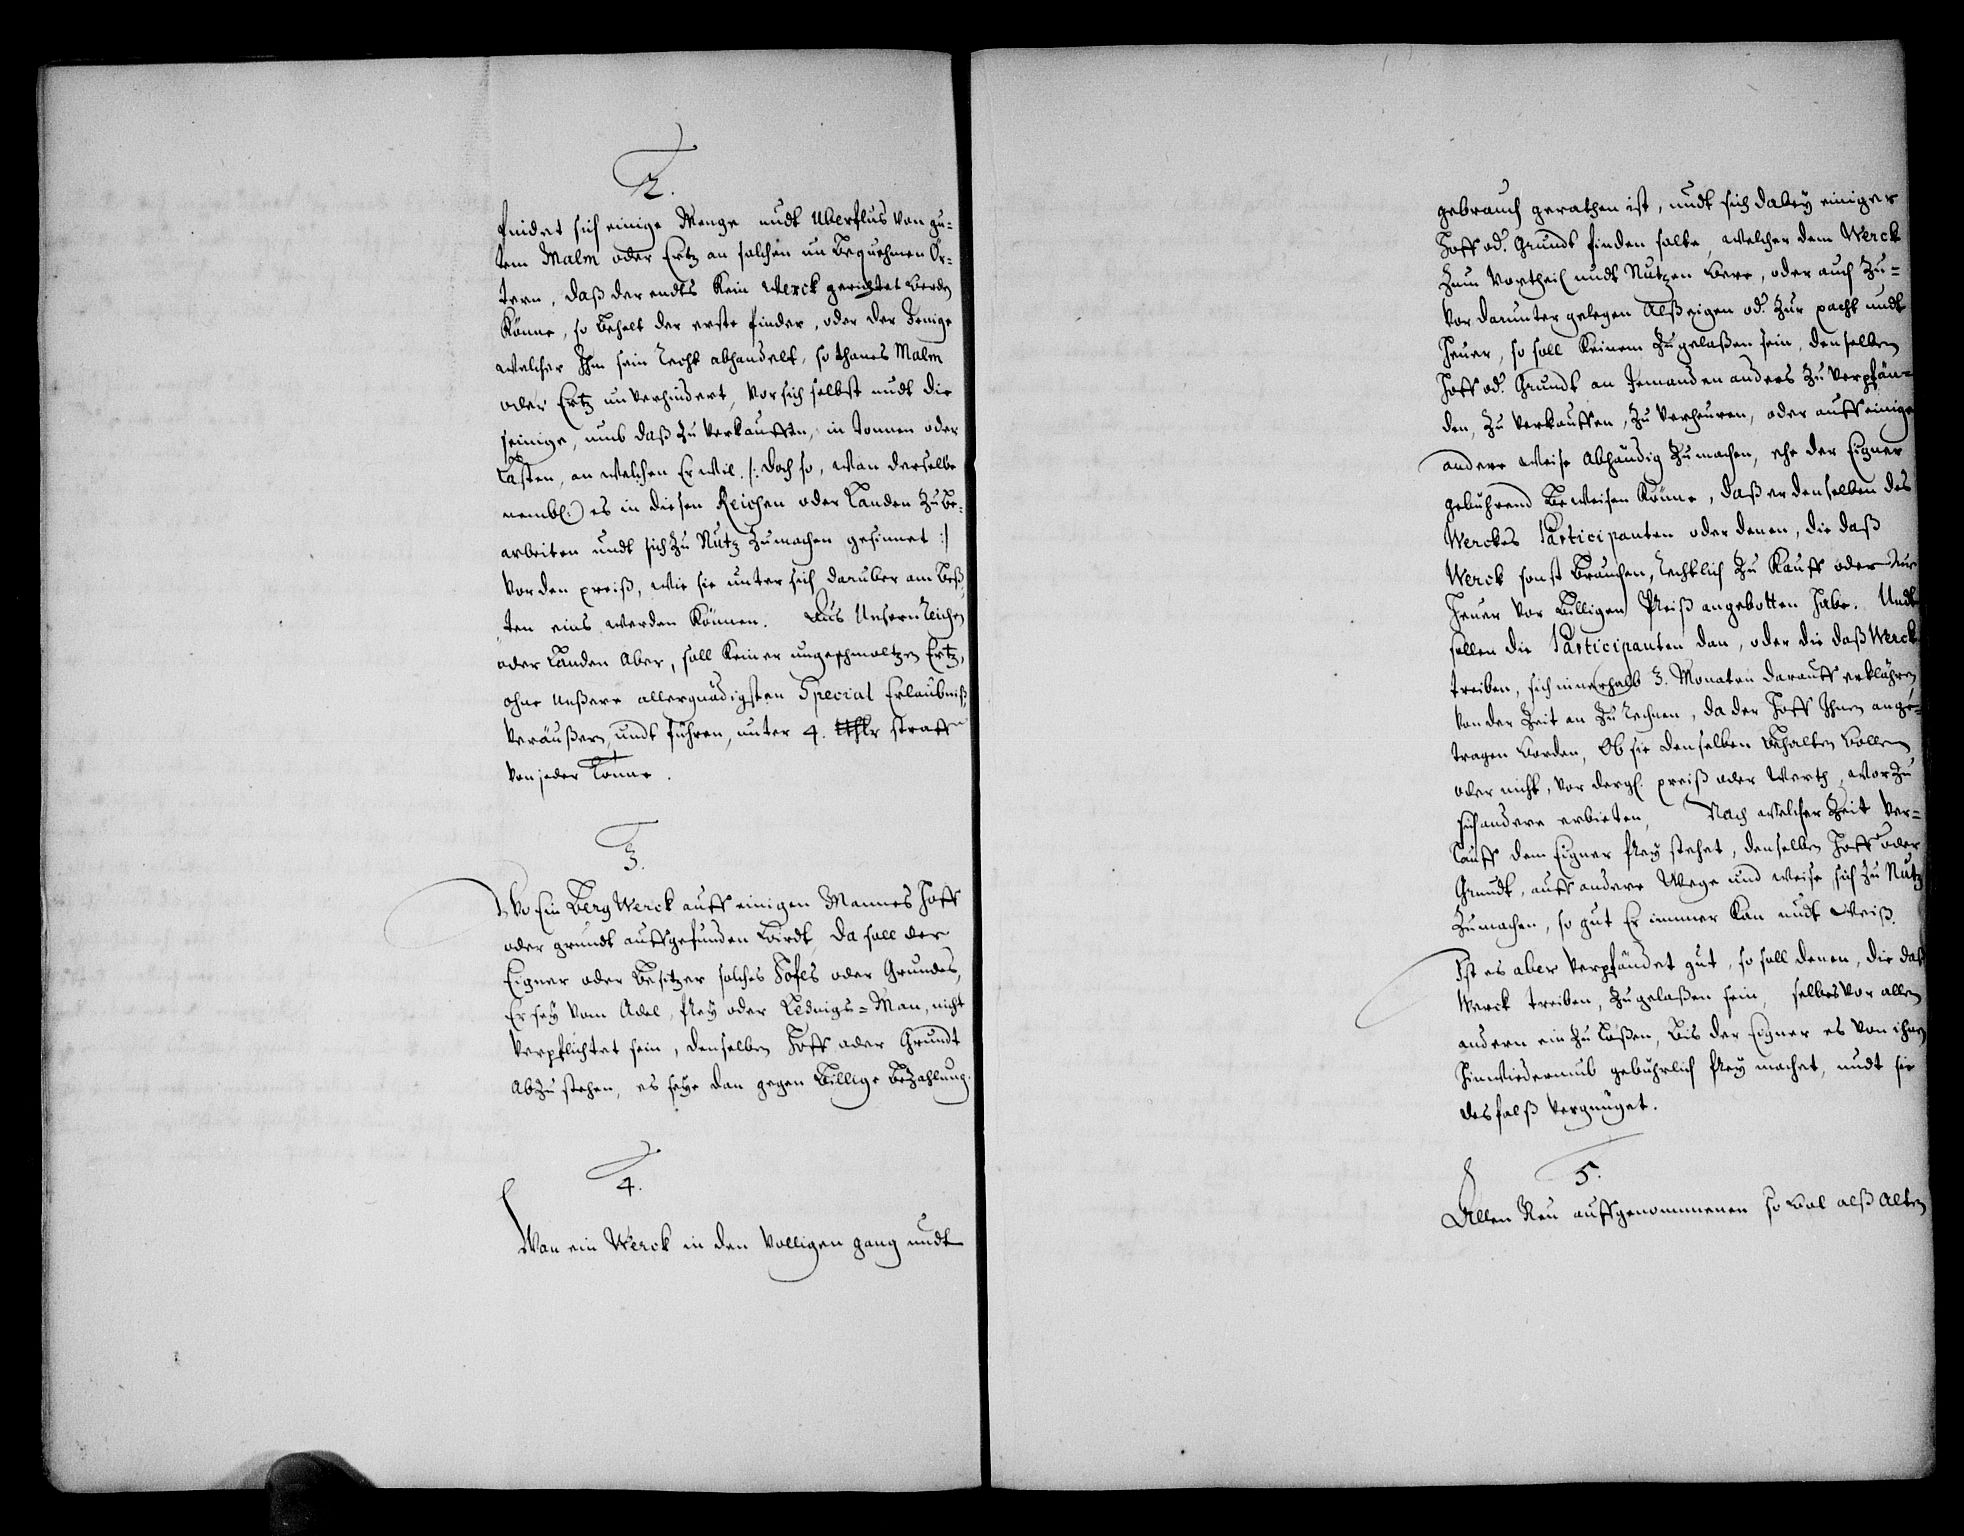 2.
findet sich einige Menge undt Uberflus von gu-
tem Malm oder Ertz an solchen un Bequehmen Ör-
tern, daß der endts kein Werck gerichtet werde
könne, so behelt der erste finder, oder der Jenige
welcher Ihm sein Recht abhandelt, so thanes Malm
oder Ertz unverhindert, vor sich selbst undt die
seinige, umb daß zu verkauffen, in tonnen oder
Lasten, an welchen Er wil /: doch so, wan derselbe
nembl:) es in diesen Reichen oder Landen zu be-
arbeiten undt sich zu Nutz zumachen gesinnet :/
vor den preiß, wie sie unter sich daruber am beß-
ten eins werden können. Aus Unsern Reichen
oder Landen Aber, soll keiner ungeschmoltzen Ertz,
ohne Unßere allergnädigsten Special Erlaubniß,
veräußern, undt führen, unter 4. straff
von jeder Tonne.
3.
Wo Ein Berg Werck auff einigen Mannes Hoff
oder grundt auffgefunden wirdt, da soll der
Eigner oder Besitzer solches Hofes oder Grundes,
Er sey vom Adel, frey oder Man, nicht
verpflichtet sein, denselben Hoff oder Grundt
Abzustehen, es seye dan gegen Billige Bezahlung.
4.
Wan ein Werck in den volligen gang undt
gebrauch gerathen ist, undt sich dabey einiger
Hoff od. Grundt finden solte, welcher dem Werck
zum Vortheil undt Nutzen were, oder auch zu-
vor darunter gelegen Alß eigen od. zur pacht undt
heuer, so soll keinem zugelaßen sein, denselben
Hoff od. Grundt an Jemanden anders zu verpfän-
den, zu verkauffen, zu verheuren, oder auff einige
andere weise Abhändig zumachen, ehe der Eigner
gebührend beweisen könne, daß er denselben des
Werckes Participanten oder denen, die daß
Werck sonst brauchen, rechtlich zu kauff oder zur
heuer vor Billigen Preiß angebotten habe. Undt
sollen die Participanten dan, oder die daß Werck
treiben, sich innerhalb 3. Monaten darauff erklähren
von der Zeit an zu rechnen, da der Hoff Ihnen ange-
tragen worden, Ob sie denselben behalten wollen
oder nicht, vor dergl. preiß oder Werth, worzu
sich andere erbieten, Nach welcher Zeit ver-
lauff dem Eigner frey stehet, denselben Hoff oder
Grundt, auff andere Wege und weise sich zu Nutz
zumachen, so gut Er immer kan undt weiß.
Ist es aber verpfändet gut, so soll denen, die daß
Werck treiben, zugelaßen sein, selbes vor allen
andern ein zu lößen, bis der Eigner es von ihnen
hinwiederumb gebührlich frey machet, undt sie
desfalß vergnüget.
5.
Allen Neu auffgenommenen so wol alß Alten